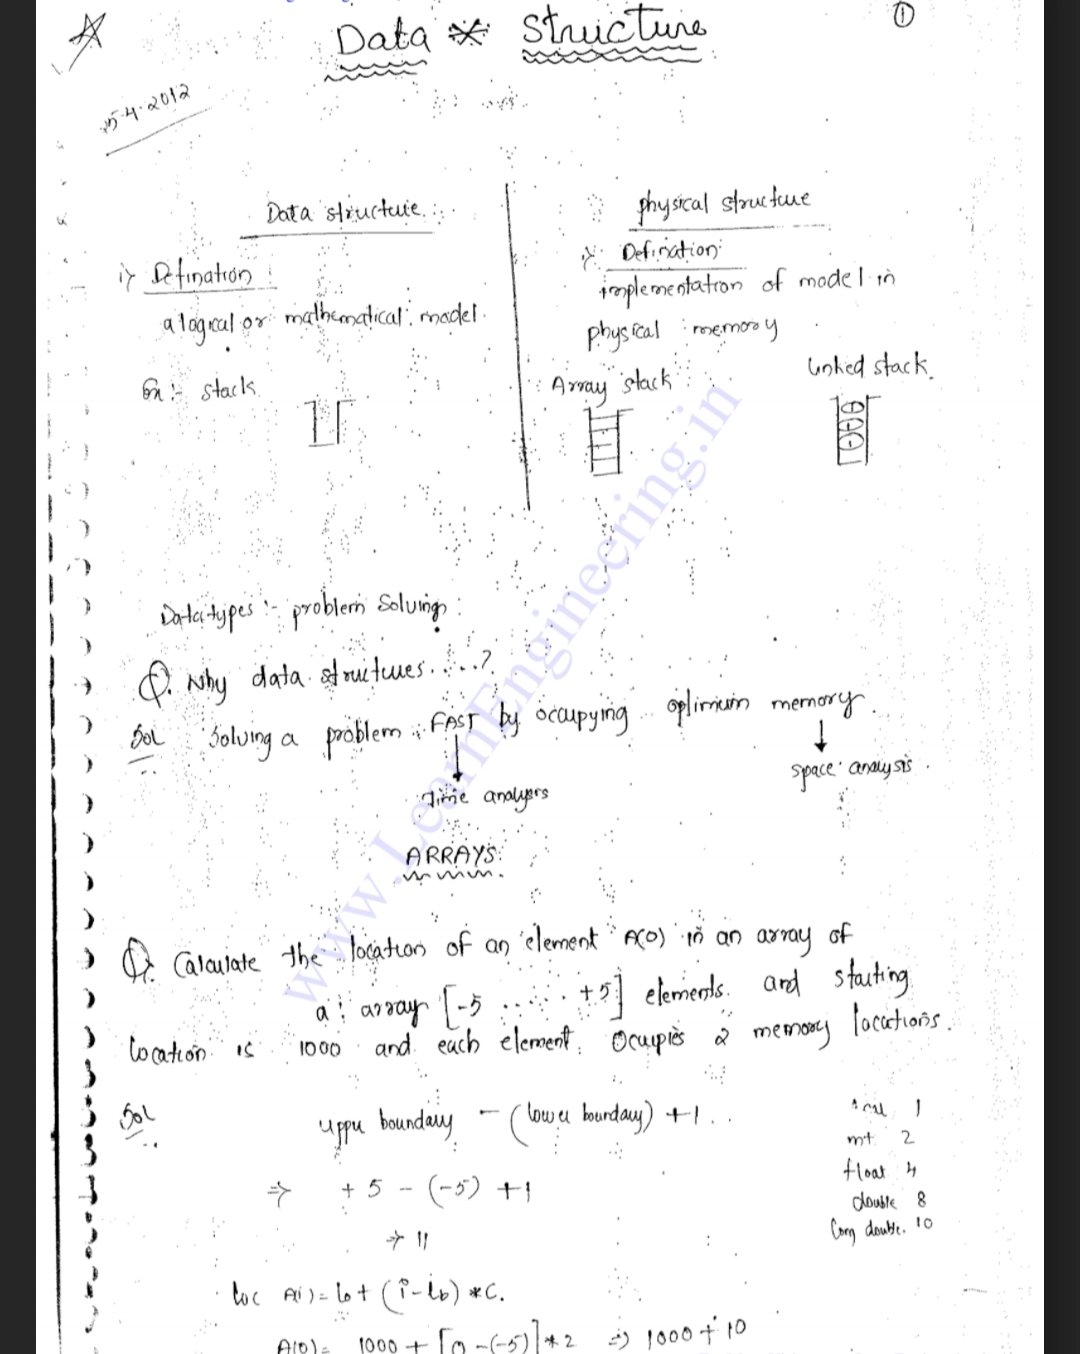 Data * Structure
①
25-4-2012
Data structure
i) Defination :
a logical or mathematical model.
Ex :- stack
physical structure
i) Defination:
implementation of model in
physical memory
Array stack
Linked stack.
Data types :- problem Solving :
Q. Why data structures.....?
Sol Solving a problem FAST by occupying optimum memory.
Time analysis
Space analysis.
ARRAYS:
Q. Calculate the location of an element A(0) in an array of
a : array [-5 ...... +5] elements. and starting
location is 1000 and each element. Ocupies 2 memory locations.
Sol
upper boundary - (lower boundary) +1..
⇒ +5 - (-5) +1
⇒ 11
1
int 2
float 4
double 8
long double. 10
loc A(i) = lo + (i - lb) * C.
A(0) = 1000 + [0 - (-5)] * 2 ⇒ 1000 + 10
www.LearnEngineering.in